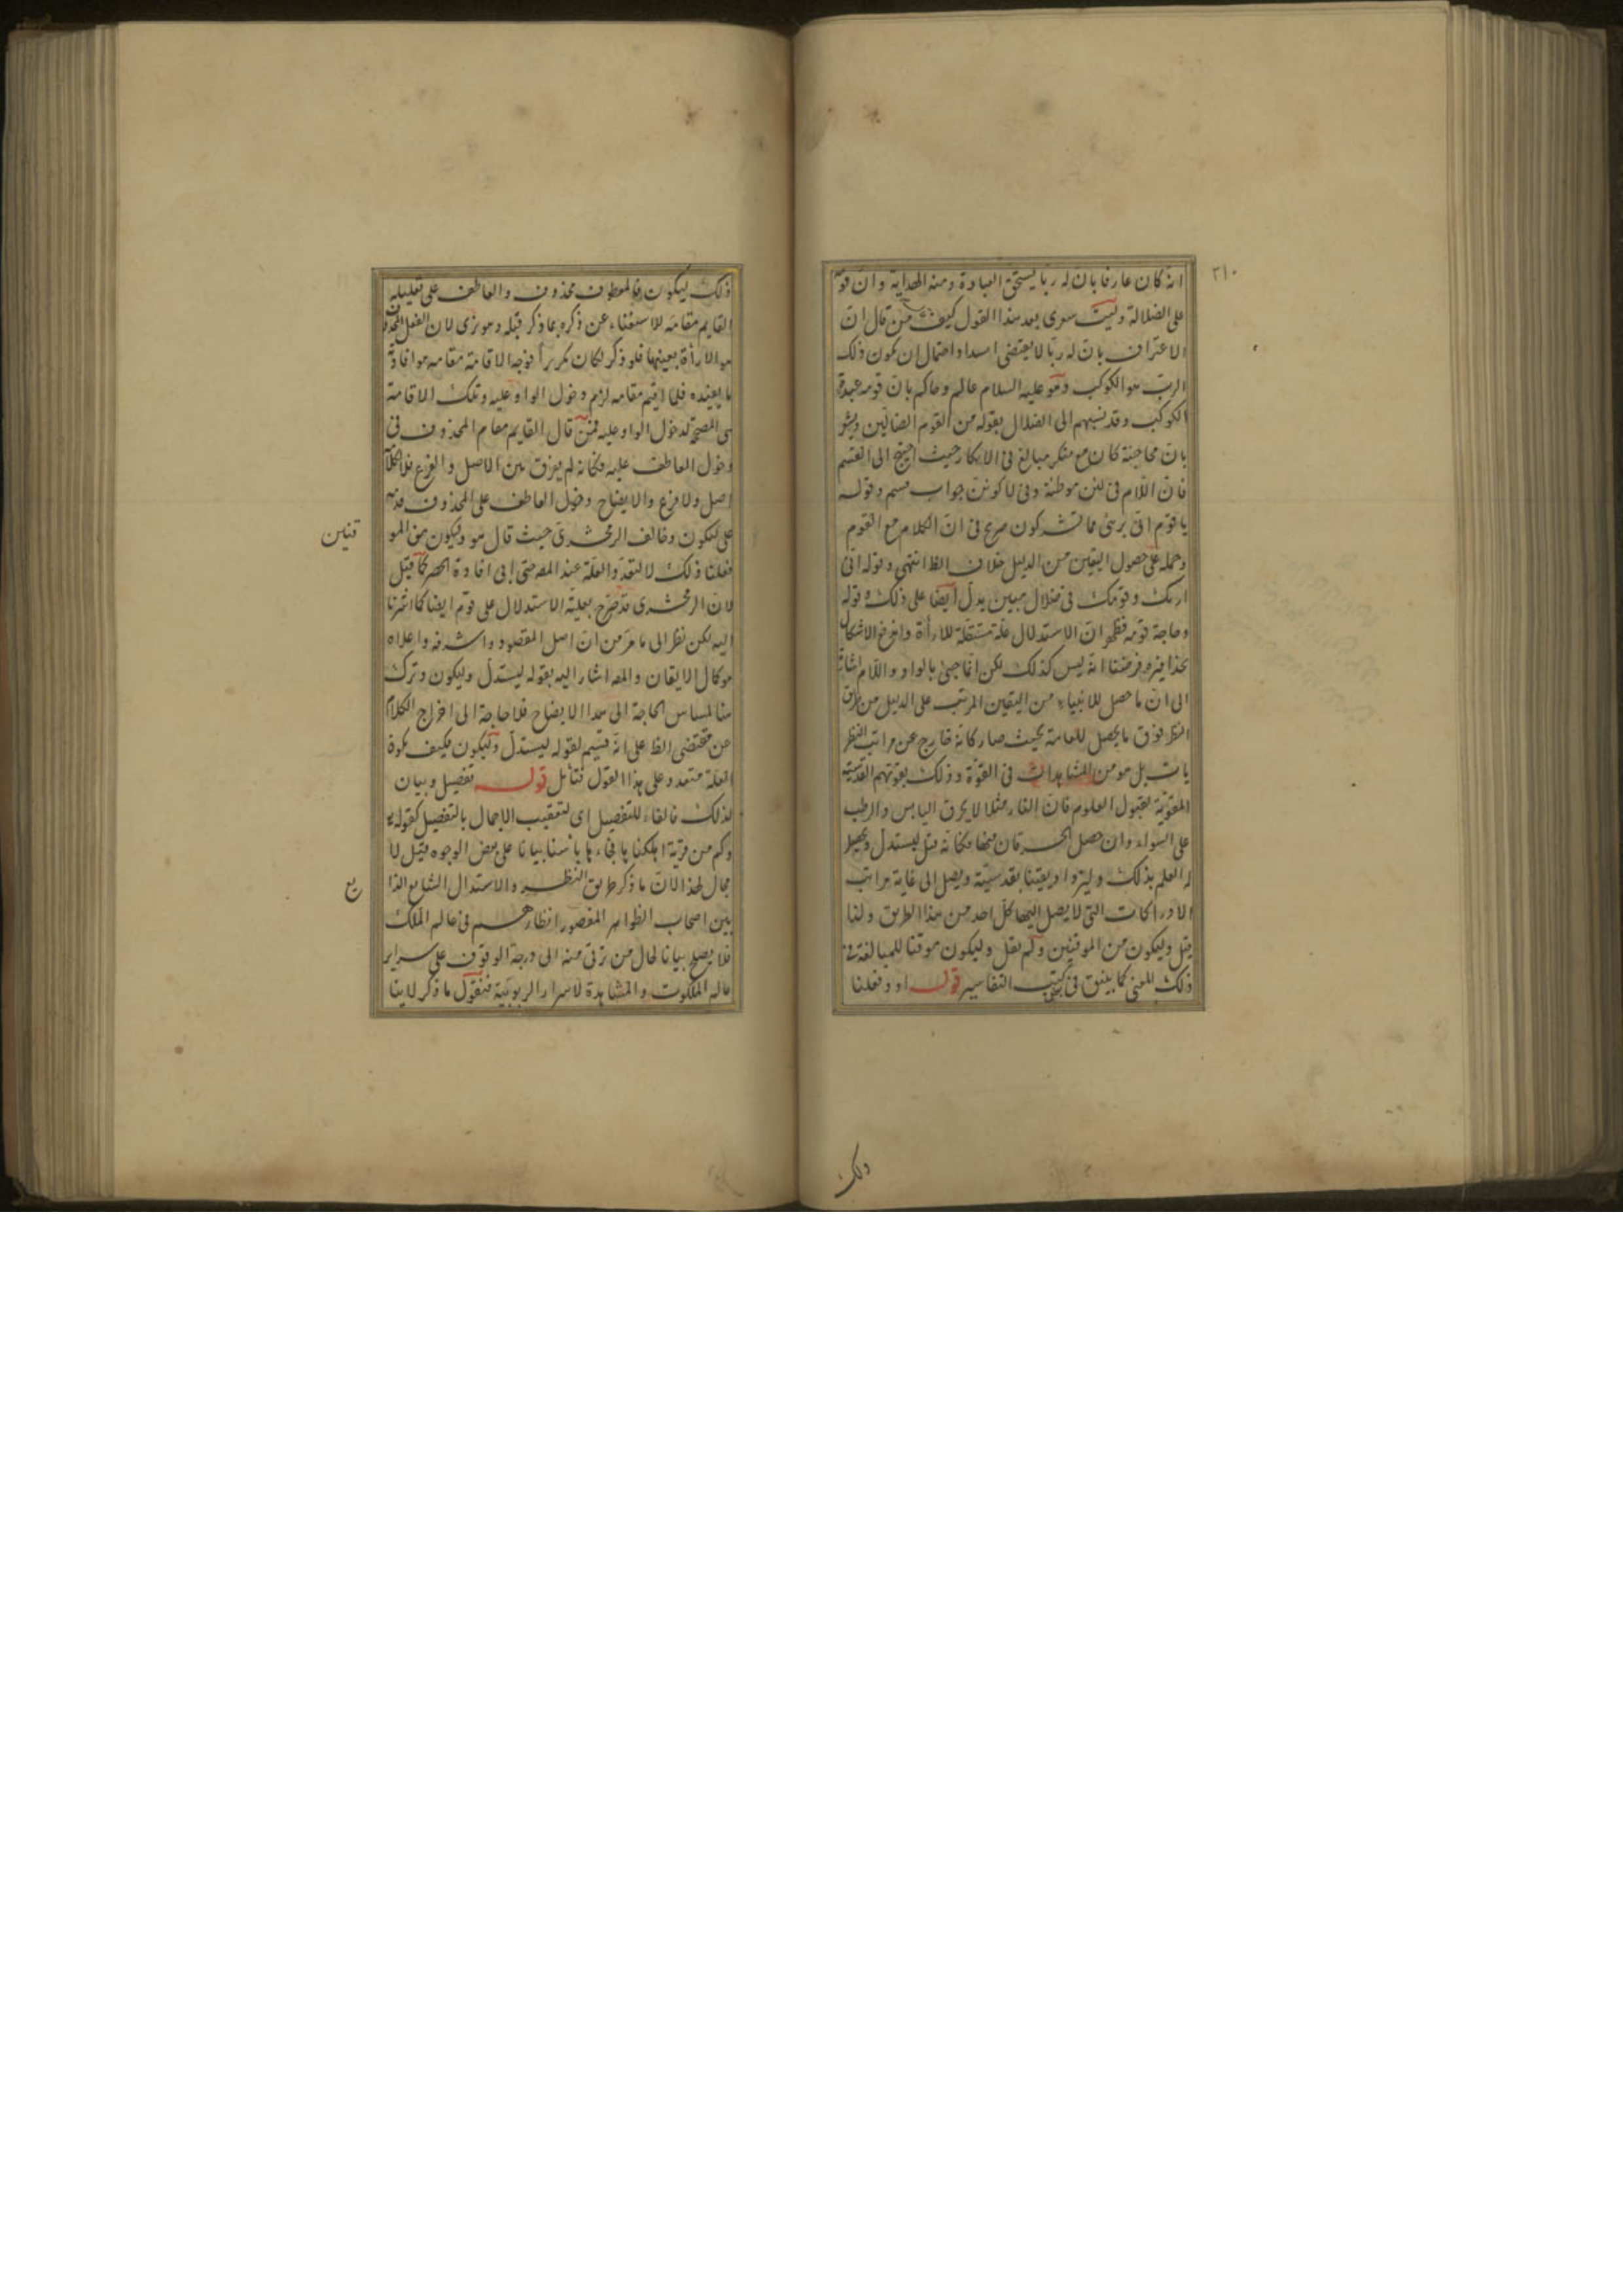 ٢١٠
انه كان عارفا بان له ربا يستحق العبادة ومنه الهداية وان قومه
على الضلالة وليت سوى بعد هذا القول كيف من قال ان
الاعتراف بان له ربا لا يقتضى اسدا واحتمال ان يكون ذلك
الرب هو الكوكب وهو عليه السلام عالم وحاكم بان قومه عبدة
الكوكب وقد نسبهم الى الضلال بقوله من القوم الضالين
بان محاجته كان مع منكر مبالغ فى الانكار حيث احتيج الى القسم
فان اللام فى لئن موطئة وفى لاكونن جواب قسم وقوله
يا قوم انى برئ مما تشركون صرح فى ان الكلام مع القوم
وحمله على حصول اليقين من الدليل خلاف الظ انتهى وقوله انى
اريك وقومك فى ضلال مبين يدل ايضا على ذلك وقوله
وحاجه قومه فظهر ان الاستدلال علة مستقلة للاراة واندفع الاشكال
بحذافيره وفرضنا انه ليس كذلك لكن انما جئ بالواو واللام اشارة
الى ان ما حصل للانبياء من اليقين المرتب على الدليل من طرق
النظر فوق ما يحصل للعامة بحيث صار كانه خارج عن مراتب النظر
يات بل هو من المشاهدات فى القوة وذلك بقوتهم القدسية
المقوية لقبول العلوم فان النار مثلا لا يحرق اليابس والرطب
على السواء وان حصل الحرقان منها فكانه قيل ليستدل ويحصل
له العلم بذلك وليزداد يقينا بقدسيته ويصل الى غاية مراتب
الادراكات التى لا يصل اليها كل احد من هذا الطريق ولذا
قيل وليكون من الموقنين ولم يقل وليكون موقنا للمبالغة فى
ذلك المعنى كما بينق فى كتب التفاسير قوله او وفعلنا
ذلك
ذلك ليكون فالمعطوف محذوف والعاطف على تعليله
القايم مقامه للاستغناء عن ذكره بما ذكر قبله وهو نرى لان الفعل المحذوف
هو الاراة بعينها فلو ذكر لكان تكريرا فوجه الاقامة مقامه هو افادة
ما يفيده فلما اقيم مقامه لزم دخول الواو عليه وتلك الاقامة
هى المصححة لدخول الواو عليه فمن قال القايم مقام المحذوف فى
دخول العاطف عليه فكانه لم يفرق بين الاصل والفرع فلا كلام
اصل ولا فرع والايضاح دخول العاطف على المحذوف
على ليكون وخالف الزمخشرى حيث قال هو وليكون من المو
قنين
فعلنا ذلك لا لتعدد العلة عند المصـ حتى ابى افادة الحصر كما قيل
لان الزمخشرى قد صرح بعلية الاستدلال على قومه ايضا كما اشرنا
اليه لكن نظرا الى ما مر من ان اصل المقصود واشرفه واعلاه
هو كمال الايقان والمصـ اشار اليه بقوله ليستدل وليكون وترك
هنا لمساس الحاجة الى هذا الايضاح فلا حاجة الى اخراج الكلام
عن مقتضى الظ على انه قسيم لقوله ليستدل وليكون فكيف يكون
العلة متعدد على هذا القول فتأمل قوله تفصيل وبيان
لذلك فالفاء للتفصيل اى لتعقيب الاجمال بالتفصيل كقوله
وكم من قرية اهلكناها فجاءها بأسنا بياتا على بعض الوجوه قيل لا
مجال لهذا لان ما ذكر طريق النظر والاستدلال الشايع الذا
يع
بين اصحاب الظواهر المقصور انظارهم فى عالم الملك
فلا يصلح بيانا لحال من ترقى منه الى درجة الوقوف على سراير
عالم الملكوت والمشاهدة لاسرار الربوبية فنقول ما ذكر لا ينا